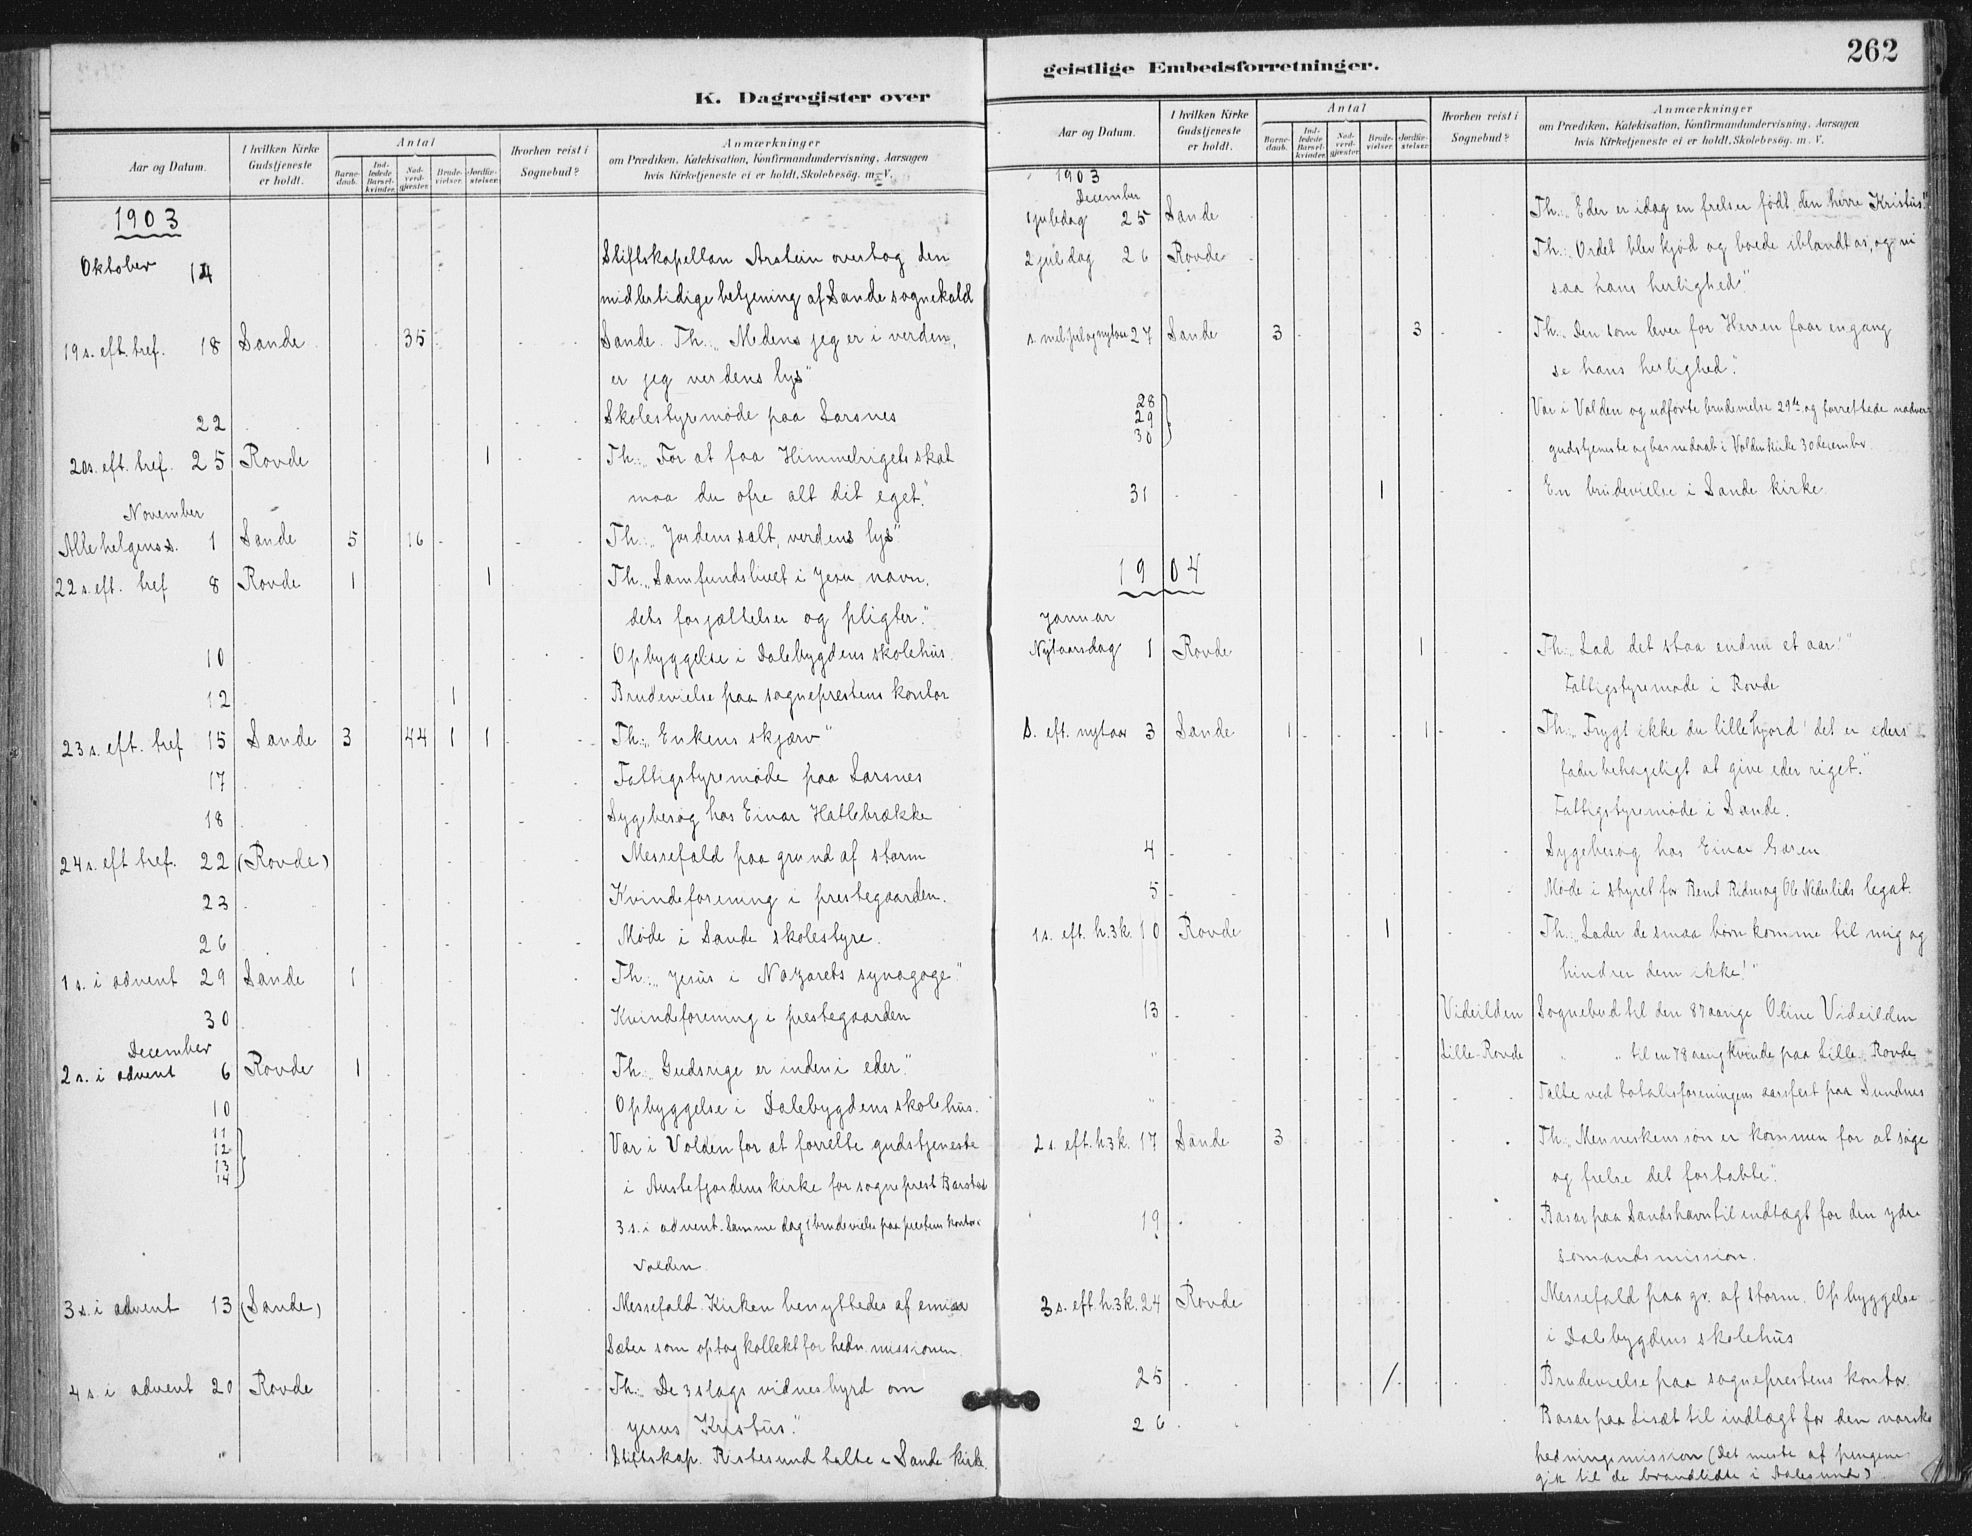 262
K. Dagregister over
geistlige Embedsforretninger.
Aar og Datum.
I hvilken Kirke Gudstjeneste er holdt.
Antal
Barnedaab.
Indledede Barselkvinder.
Nadverdgjester.
Brudevielser.
Jordfæstelser.
Hvorhen reist i Sognebud?
Anmærkninger
om Prædiken, Katekisation, Konfirmandundervisning, Aarsagen
hvis Kirketjeneste ei er holdt, Skolebesøg. m. V.
1903
Oktober 14 Stiftskapellan Arstein overtog den
midlertidige betjening af Sande sognekald
19 s. eft. tref. 18 Sande 35 Sande. Th.: „Medens jeg er i verden,
er jeg verdens lys"
22 Skolestyremøde paa Larsnes
20 s. eft. tref. 25 Rovde 1 Th.: „For at faa Himmelrigets skat
maa du ofre alt dit eget."
November
Allehelgens s. 1 Sande 5 16 Th.: „Jordens salt, verdens lys"
22 s. eft. tref 8 Rovde 1 1 Th.: „Samfundslivet i Jesu navn,
dets forjættelser og pligter."
10 Opbyggelse i Dalebygdens skolehus.
12 1 Brudevielse paa sogneprestens kontor
23 s. eft. tref 15 Sande 3 44 1 1 Th.: „Enkens skjærv"
17 Fattigstyremøde paa Larsnes
18 Sygebesøg hos Einar Hatlebrække
24 s. eft tref. 22 (Rovde) Messefald paa grund af storm
23 Kvindeforening i prestegaarden.
26 Møde i Sande skolestyre.
1 s. i advent 29 Sande 1 Th.: „Jesus i Nazarets synagoge"
30 Kvindeforening i prestegaarden
December
2 s. i advent 6 Rovde 1 Th.: „Gudsrige er inden i eder."
10 Opbyggelse i Dalebygdens skolehus.
11
12 Var i Volden for at forrette gudstjeneste
13
14 i Austefjordens kirke for sogneprest Barstad
3. s. i advent. Samme dag 1 brudevielse paa prestens kontor i
Volden.
3 s. i advent 13 (Sande) Messefald. Kirken benyttedes af emissær
Sæter som optog kollekt for hedn. missionen.
4 s. i advent 20 Rovde Th.: „De 3 slags vidnesbyrd om
Jesus Kristus."
" Stiftskap. Ristesund talte i Sande kirke.
Aar og Datum.
I hvilken Kirke Gudstjeneste er holdt.
Antal
Barnedaab.
Indledede Barselkvinder.
Nadverdgjester.
Brudevielser.
Jordfæstelser.
Hvorhen reist i Sognebud?
Anmærkninger
om Prædiken, Katekisation, Konfirmandundervisning, Aarsagen
hvis Kirketjeneste ei er holdt, Skolebesøg. m. V.
1903
December
1 juledag 25 Sande Th.: „Eder er idag en frelser født, den herre Kristus."
2 juledag 26 Rovde Th.: „Ordet blev kjød og boede iblandt os, og vi
saa hans herlighed."
s. mel. jul og nytaar 27 Sande 3 3 Th.: „Den som lever for Herren faar engang
se hans herlighed."
28
29 Var i Volden og udførte brudevielse 29de og forrettede nadver-
30 gudstjeneste og barnedaab i Volden kirke 30 december.
31 1 En brudevielse i Sande kirke.
1904
Januar
Nytaarsdag 1 Rovde 1 Th.: „Lad det staa endnu et aar!"
Fattigstyremøde i Rovde
S. eft. nytaar 3 Sande 1 1 Th.: „Frygt ikke du lille hjord! det er eders
fader behageligt at give eder riget."
Fattigstyremøde i Sande.
4 Sygebesøg hos Einar
5 Møde i styret for Bent Ole legat.
1 s. eft. h. 3 k. 10 Rovde 1 Th.: „Lader de smaa børn komme til mig og
hindrer dem ikke!"
13 Videilden Sognebud til den 87 aarige Oline Videilden
" Lille-Rovde " " til en 78 aarig kvinde paa Lille-Rovde
" Talte ved totalforeningens aarsfest paa
2 s. eft. h. 3 k. 17 Sande 3 Th.: „Menneskens søn er kommen for at søge
og frelse det fortabte."
19 Basar paa Sandshavn til indtægt for den ydre
sømandsmission.
3 s. eft. h. 3 k. 24 Rovde Messefald paa gr. af storm. Opbyggelse
i Dalebygdens skolehus
25 1 Brudevielse paa sogneprestens kontor.
26 Basar paa Lisæt til indtægt for den norske
hedningemission (Det meste af pengene
gik til de brandlidte i Aalesund)